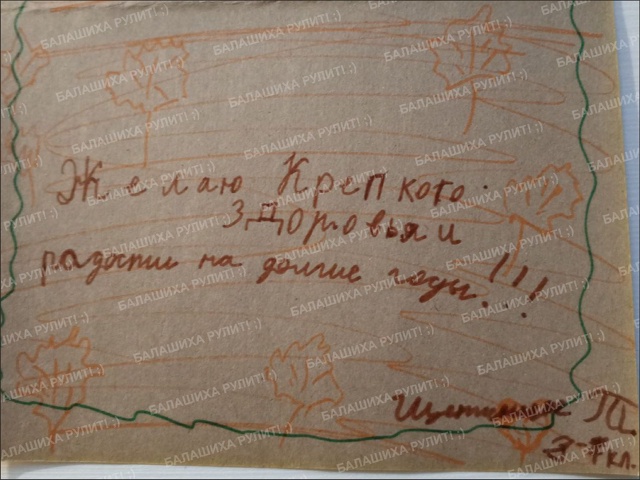 Желаю Крепкого
здоровья и
радости на долгие годы!!!
П.
кл.
БАЛАШИХА РУЛИТ! ;)